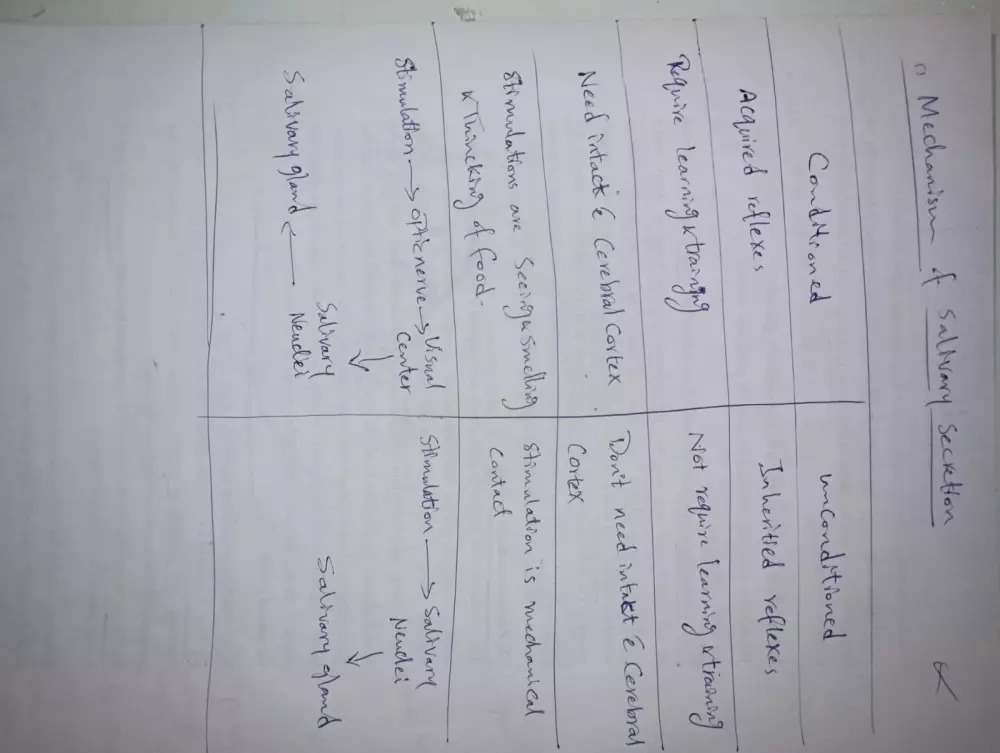 " Mechanism of Salivary Secretion
Conditioned
unconditioned
Acquired reflexes
Inheritied reflexes
Require learning & training
Not require learning & training
Need intact & Cerebral Cortex
Don't need intakt & Cerebral
Cortex
Stimulations are Seeing & Smelling
& Thincking of food.
Stimulation is mechanical
Contact
Stimulation → optic nerve → Visual
Center
↓
Salivary
Neuclei
Salivary gland ←
Stimulation → Salivary
Neuclei
↓
Salivary gland